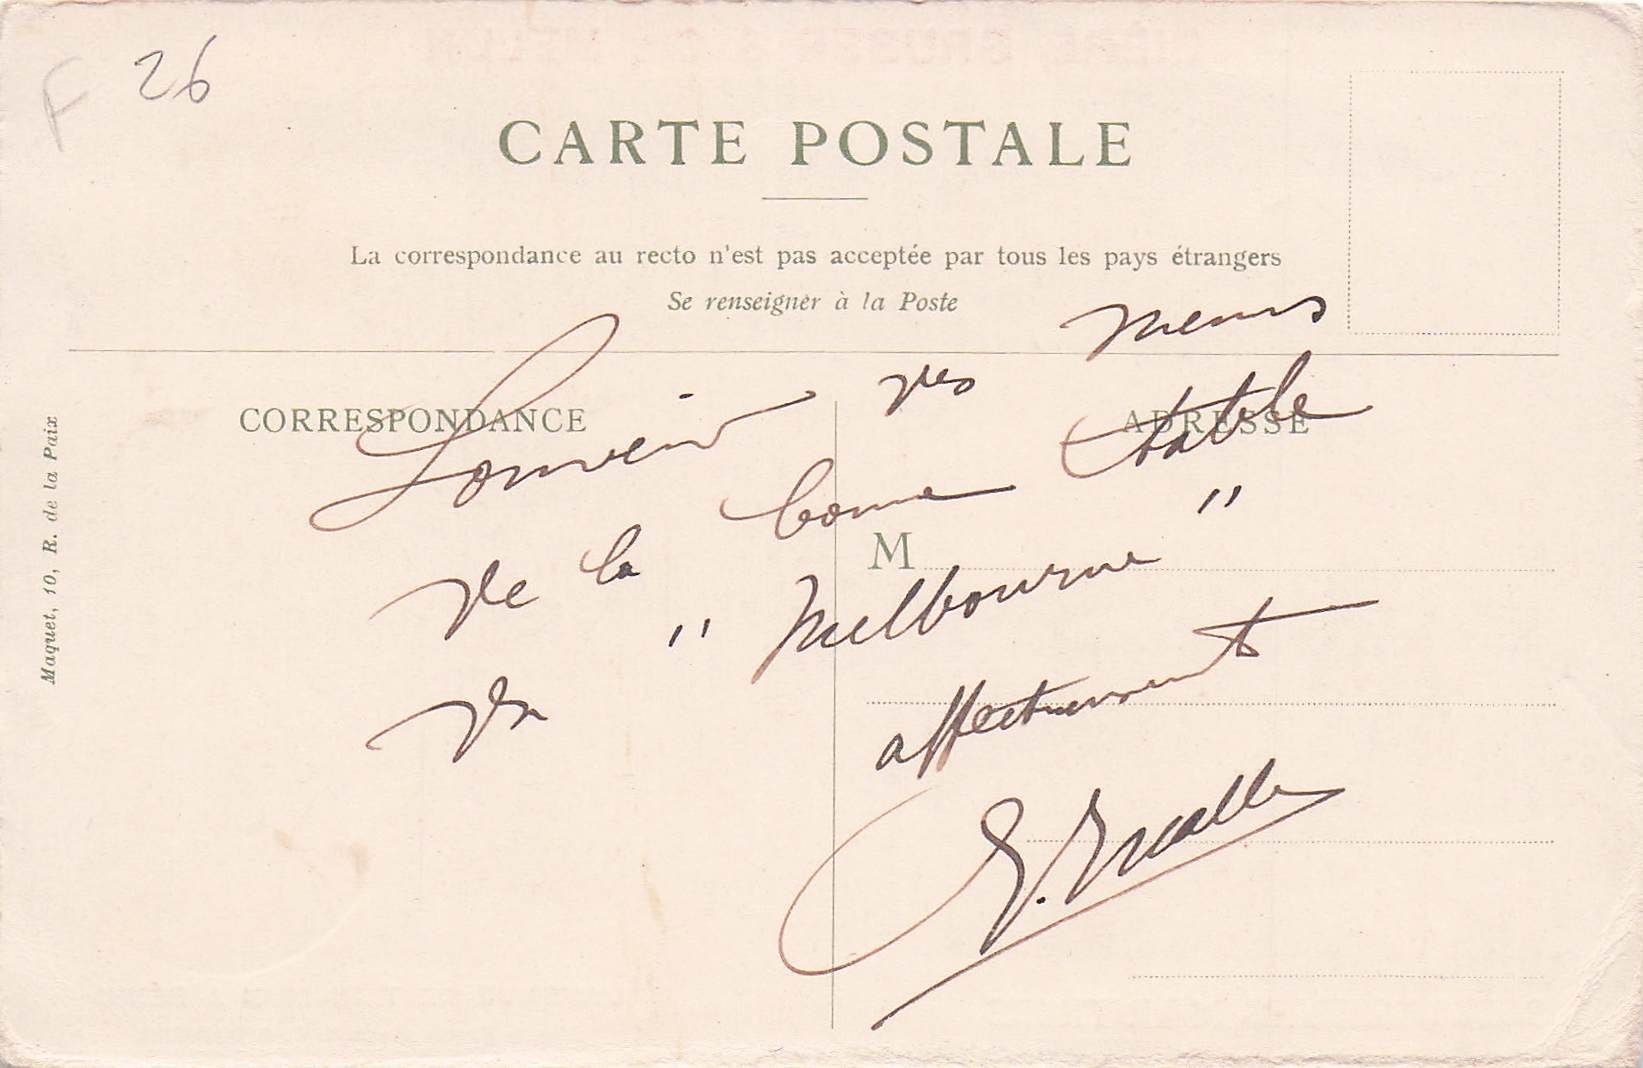 F 26
CARTE POSTALE
La correspondance au recto n'est pas acceptée par tous les pays étrangers
Se renseigner à la Poste
CORRESPONDANCE
ADRESSE
M
Maquet, 10, R. de la Paix
Souvenir des menus
de la bonne table
du "Melbourne"
affectueusement